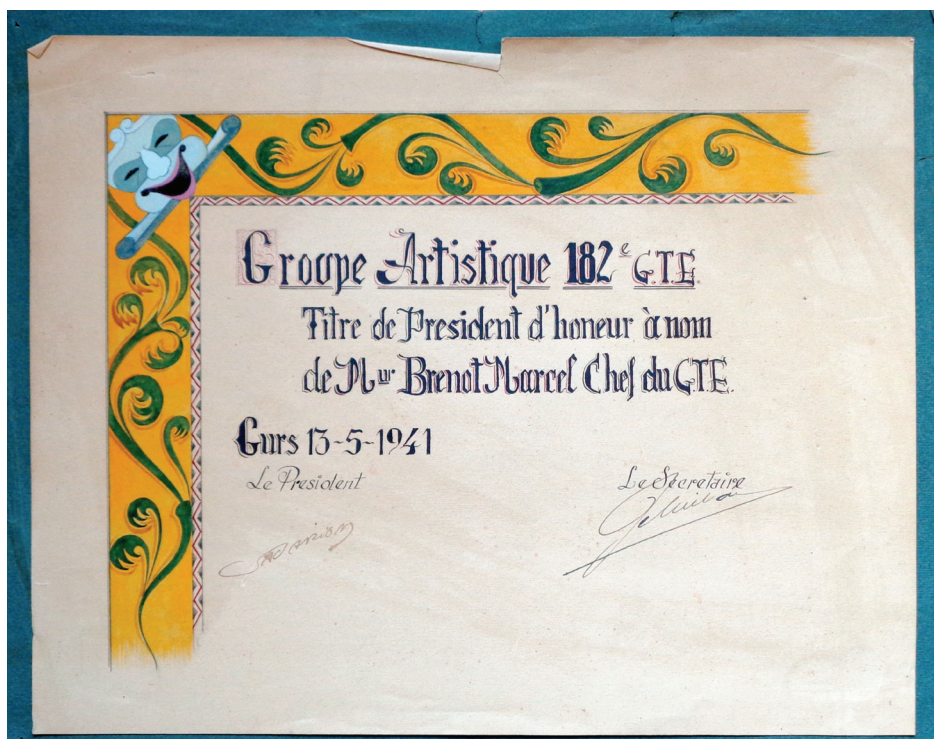 Groupe Artistique 182e G.T.E.
Titre de President d'honeur à nom
de Mur Brenot Marcel Chef du G.T.E.
Gurs 13-5-1941
Le President
Le Secretaire